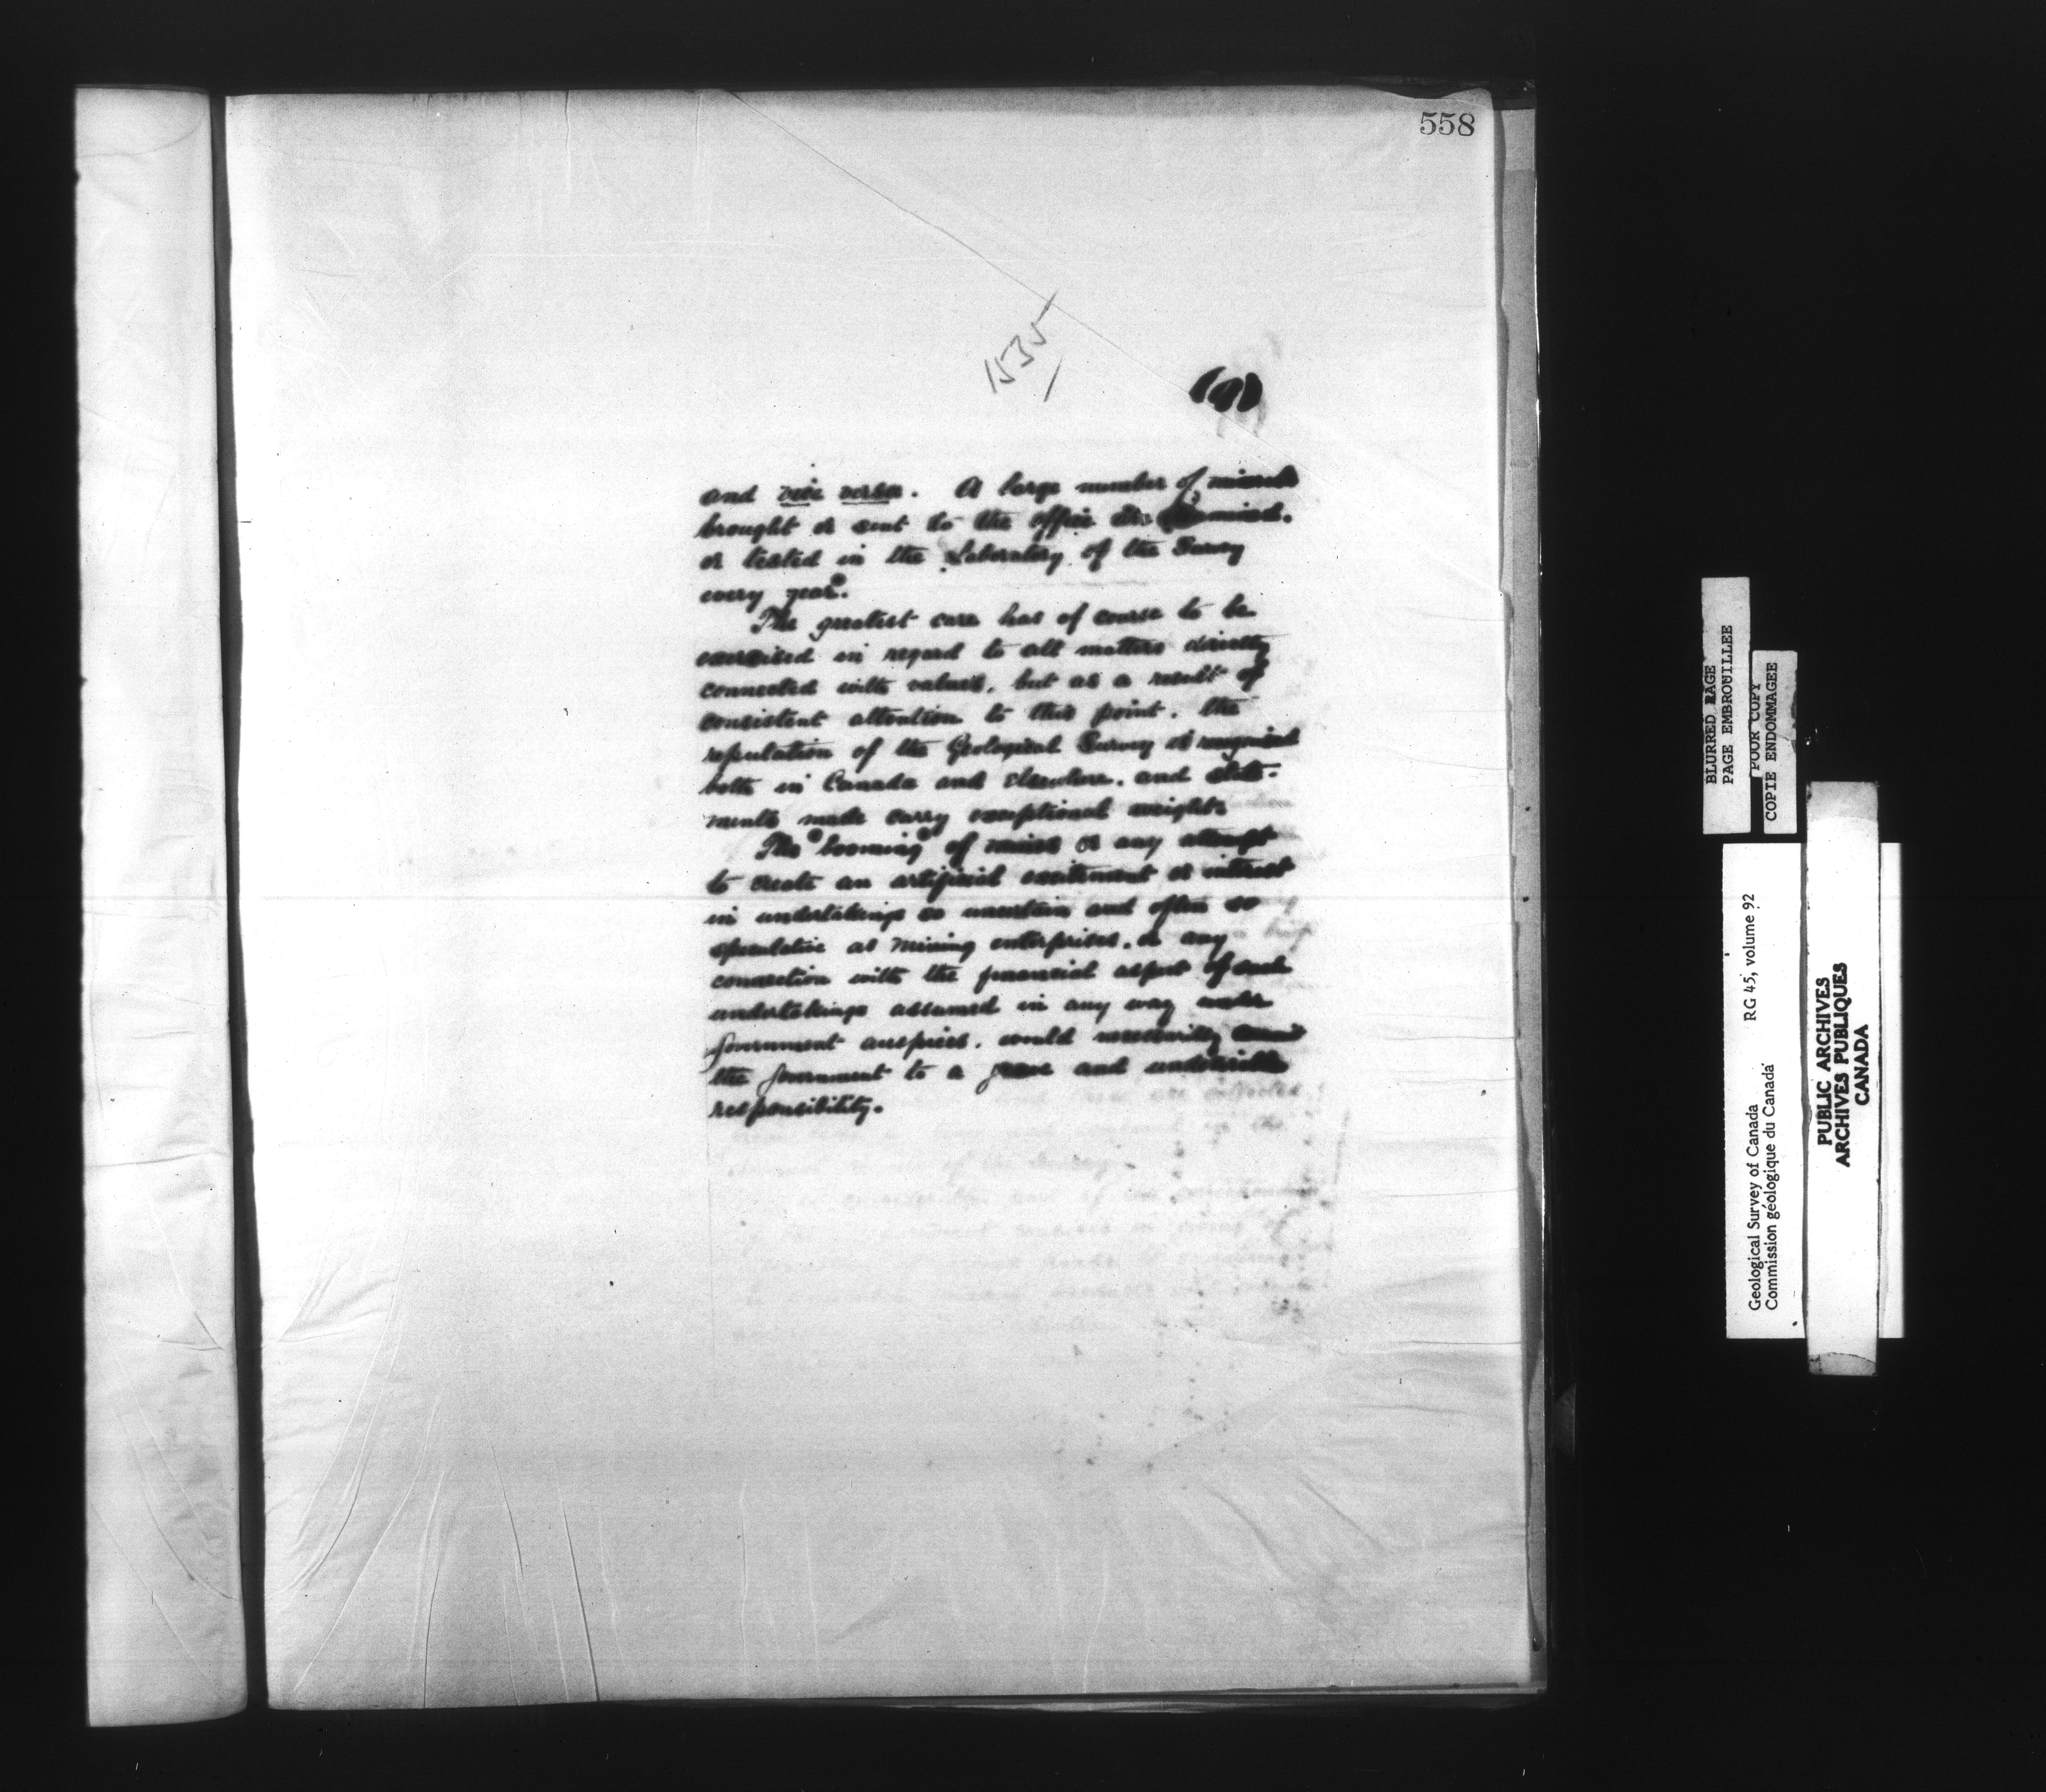 558
1535
(9)
and vice versa. A large number of minerals
brought or sent to the office are examined.
or tested in the Laboratory of the Survey
every year.
The greatest care has of course to be
exercised in regard to all matters directly
connected with values, but as a result of
consistent attention to this point, the
reputation of the Geological Survey is recognized
both in Canada and elsewhere, and state-
ments made carry exceptional weight.
The "booming" of mines or any attempt
to create an artificial excitement or interest
in undertakings so uncertain and often so
speculative as mining enterprises, or any
connection with the financial aspect of such
undertakings assumed in any way under
Government auspices, would necessarily commit
the Government to a grave and undesirable
responsibility.
BLURRED PAGE
PAGE EMBROUILLEE
POOR COPY
COPIE ENDOMMAGEE
Geological Survey of Canada RG 45, volume 92
Commission géologique du Canada
PUBLIC ARCHIVES
ARCHIVES PUBLIQUES
CANADA